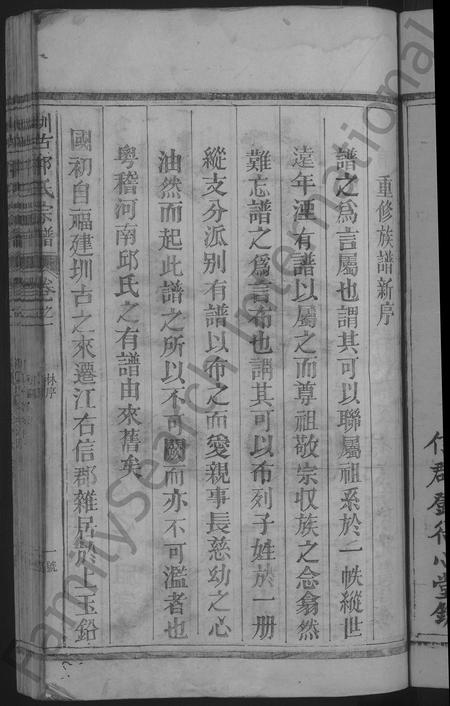 重修族譜新序
譜之爲言屬也謂其可以聯屬祖系於一帙縱世
遠年湮有譜以屬之而尊祖敬宗収族之念翕然
難忘譜之爲言布也謂其可以布列子姓於一册
縱支分派別有譜以布之而愛親事長慈幼之心
油然而起此譜之所以不可闕而亦不可濫者也
粤稽河南邱氏之有譜由來舊矣
國初自福建圳古之來遷江右信郡雜居於上玉鉛
圳古邱氏宗譜 卷之一 林序 一號
FamilySearch International